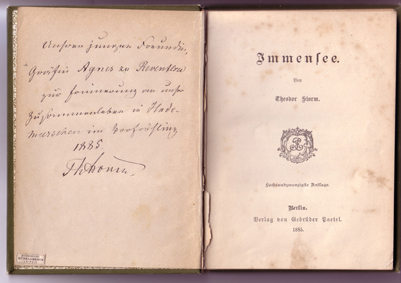 Unserer jungen Freundin
Gräfin Agnes zu Reventlow
zur Erinnerung an unser
Zusammenleben in Hade-
marschen im Vorfrühling
1885.
ThStorm
Immensee.
Von
Theodor Storm.
Sechsundzwanzigste Auflage
Berlin.
Verlag von Gebrüder Paetel.
1885.